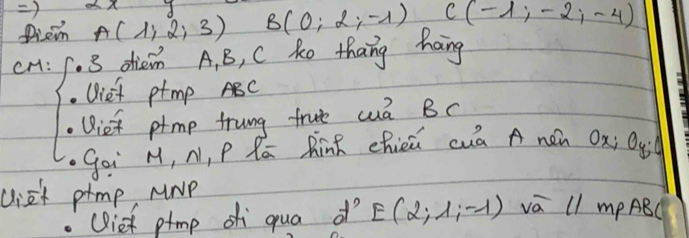 =) 2x y
Điểm A(1; 2; 3) B(0; 2; -1) C(-1; -2; -4)
CM: • 3 điểm A, B, C ko thẳng hàng
• Viết ptmp ABC
• Viết ptmp trung trực của BC
• Gọi M, N, P là hình chiếu của A nên Ox; Oy;
Viết ptmp MNP
• Viết ptmp đi qua đ' E(2; 1; -1) và // mp ABC